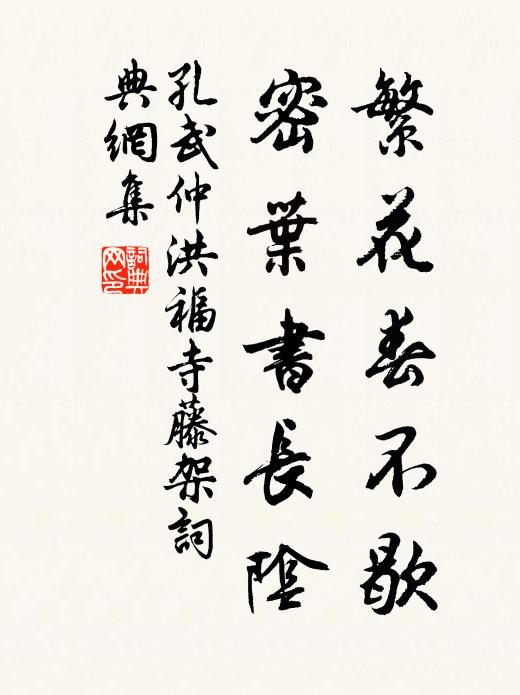 繁花春不歇
密葉書長陰
孔武仲洪福寺藤架詞
典網集
詞典
网印